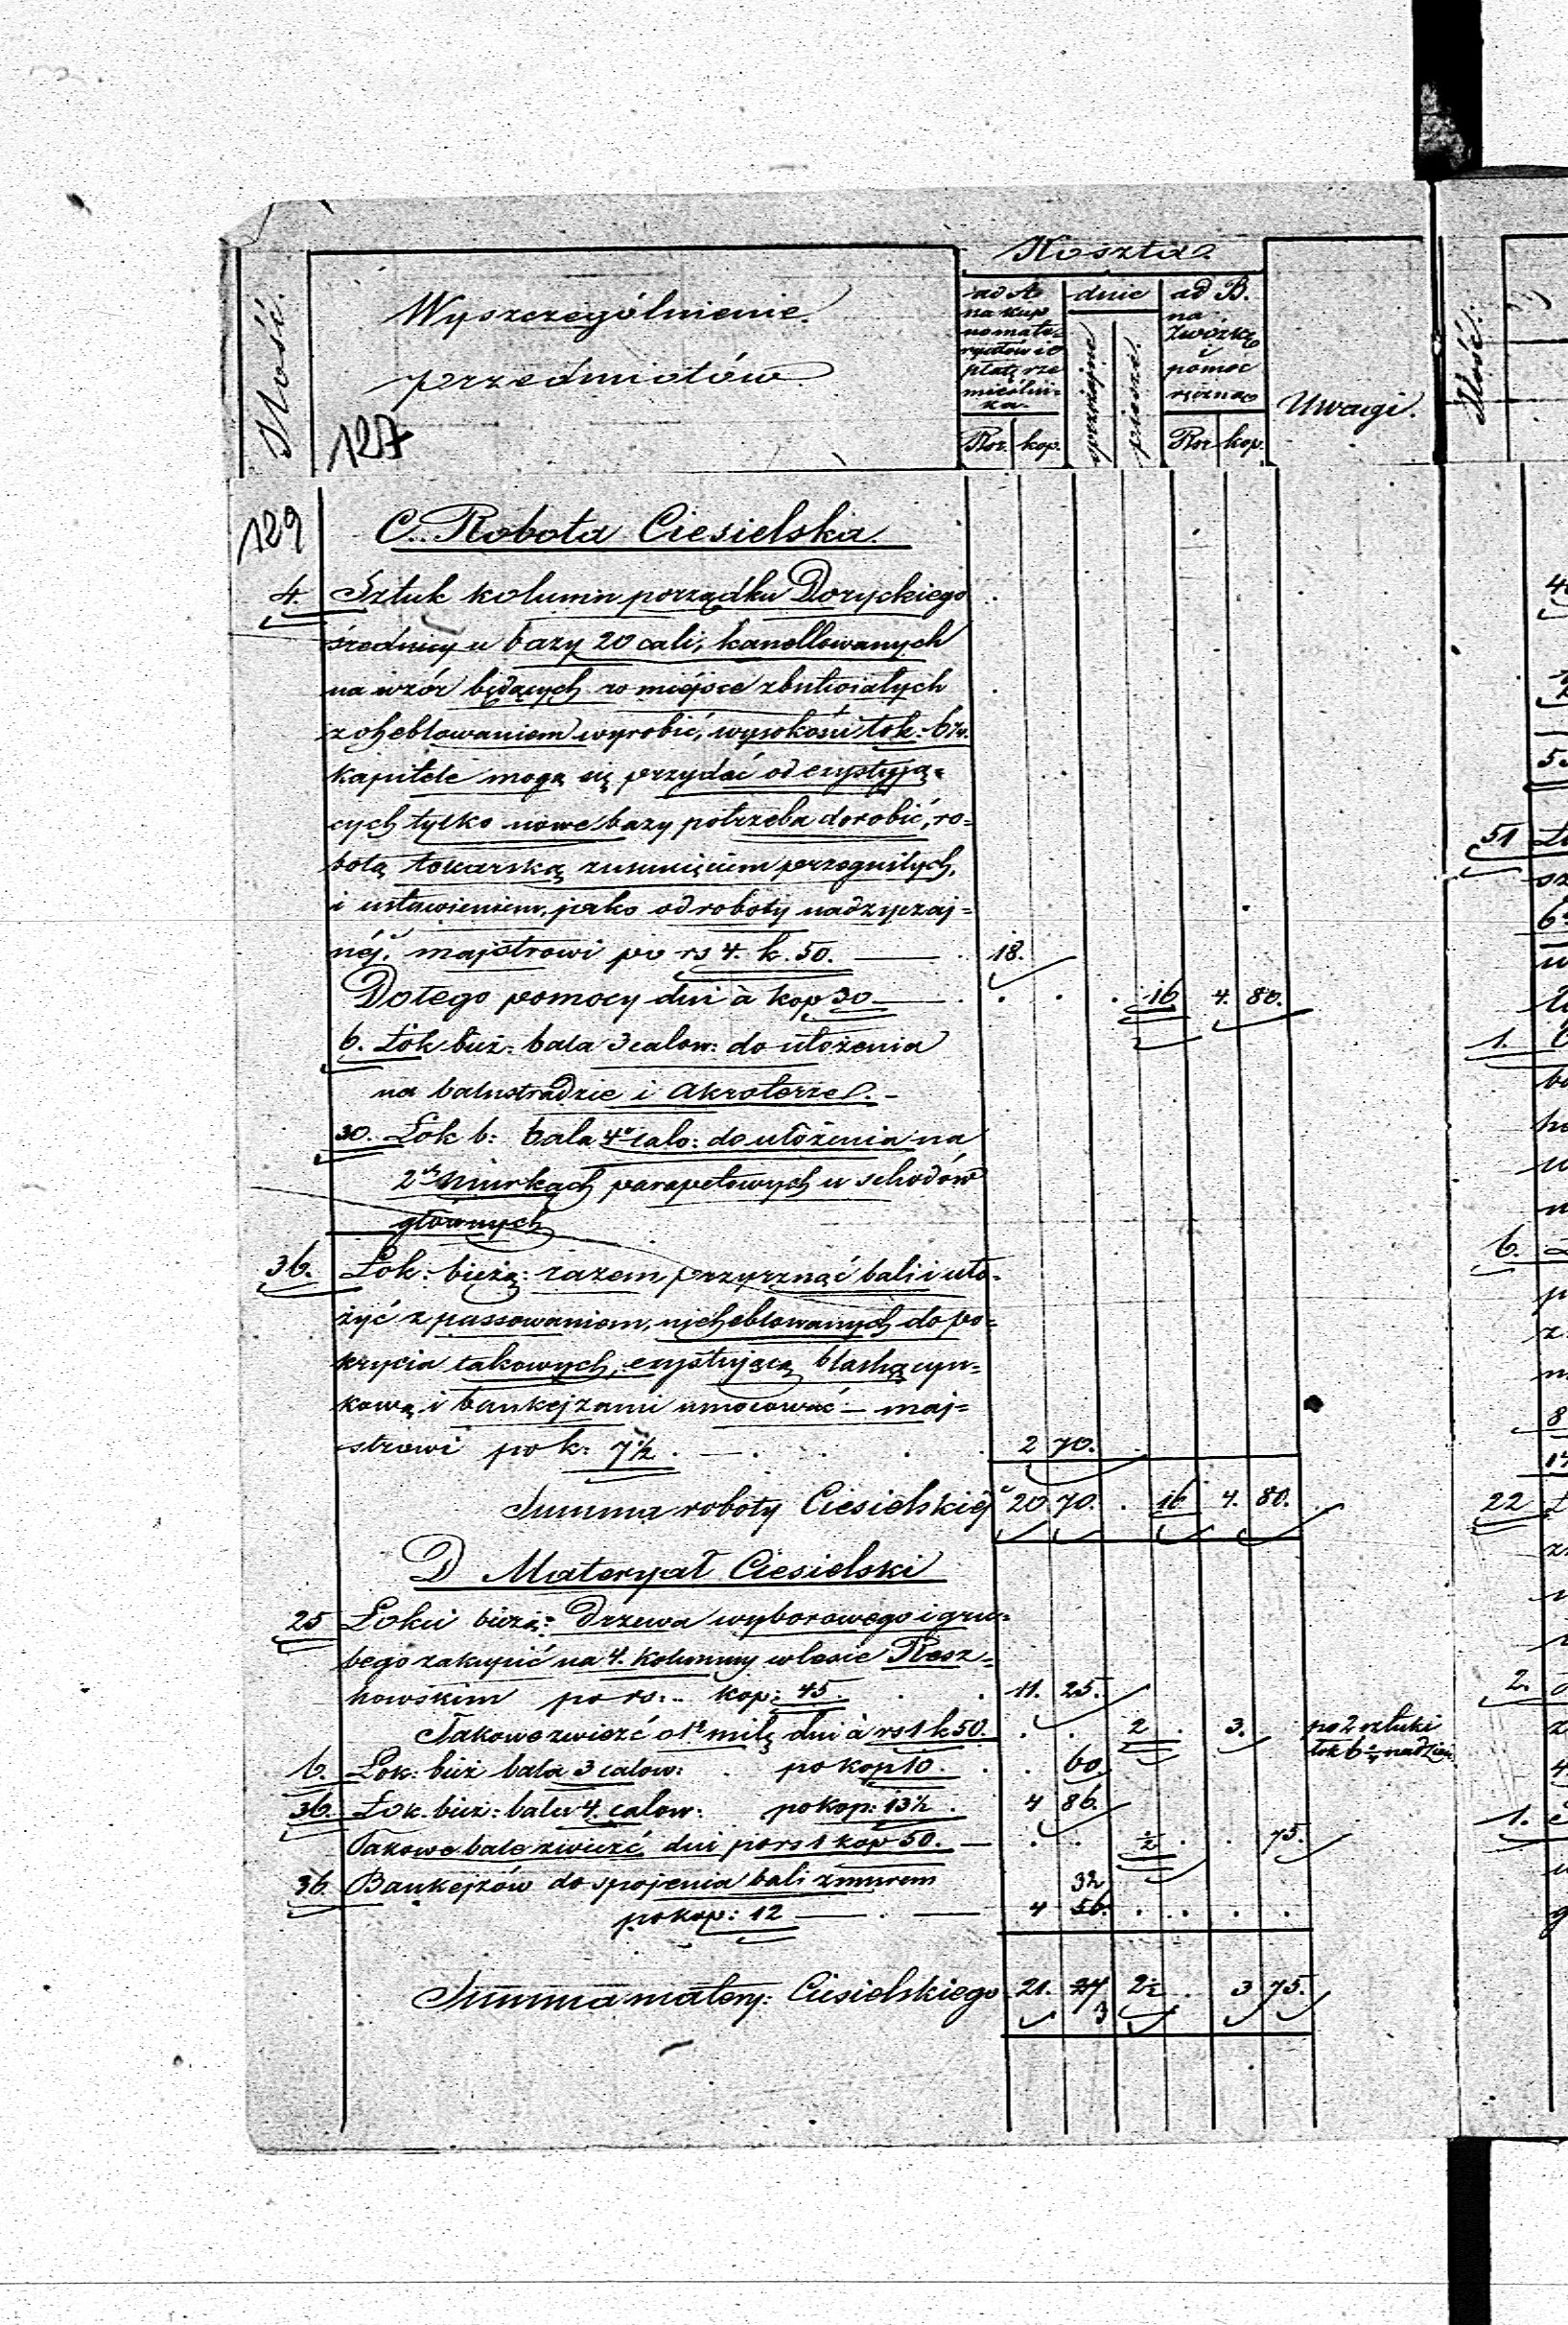 Ilość.
Wyszczególnienie
przedmiotów.
127
Koszta
ad A.
na kup
no mate-
ryałów i o
płatę rze
mieślni-
ka.
Rsr. kop.
dnie
sprzężajne
piesze.
ad B.
na
zwózkę
i
pomoc
ręczną
Rsr kop.
Uwagi.
129
C. Robota Ciesielska.
4. Sztuk kolumn porządku Doryckiego
średnicy u bazy 20 cali, kanellowanych
na wzór będących w miejsce zbutwiałych
z oheblowaniem wyrobić, wysokości łok: 6 1/4.
kapitele mogą się przydać od exystyją-
cych tylko nowe bazy potrzeba dorobić, ro-
botą tokarską z usunięciem przegniłych,
i ustawieniem, jako od roboty nadzyczaj-
néj. majstrowi po rs 4. k. 50. — 18.
Dotego pomocy dni à kop 30 — . . . 16 4. 80.
6. Łok bież: bala 3 calow: do ułożenia
na balustradzie i Akroterze. -
30. Łok b: bala 4" calo: do ułożenia na
2ch murkach parapetowych u schodów
głównych
36. Łok: bieżą: razem przyrznąć bali i uło-
żyć z passowaniem, niecheblowanych do po-
krycia takowych, exystującą blachą cyn-
kową i bankejzami umocować — maj-
strowi po k: 7 1/2. — . . . 2 70.
Summa roboty Ciesielskiéj 20. 70. . 16 4. 80.
D Materyał Ciesielski
25 Łokci bieżą: Drzewa wyborowego i gru-
bego zakupić na 4. kolumny w lesie
howskim po rs: .. kop: 45. . . 11. 25.
Takowe zwieźć o 1ą milę dni à rs 1 k 50. . . 2 . 3. po 2 sztuki
na dzień
6. Łok: bież bala 3 calow: . po kop 10. . . 60
36. Łok. bież: bala 4. calow: po kop: 13 1/2 . 4 86.
Takowe bale zwieźć dni po rs 1 kop 50. — . . 1/2 . . 75.
36. Bankejzów do spojenia bali z murem 32
po kop: 12 — . — 4 56. . . . .
Summa matery: Ciesielskiego 21. 27 2 1/2 . 3 75.
3
Ilość.
51
1.
6.
22
2.
1.